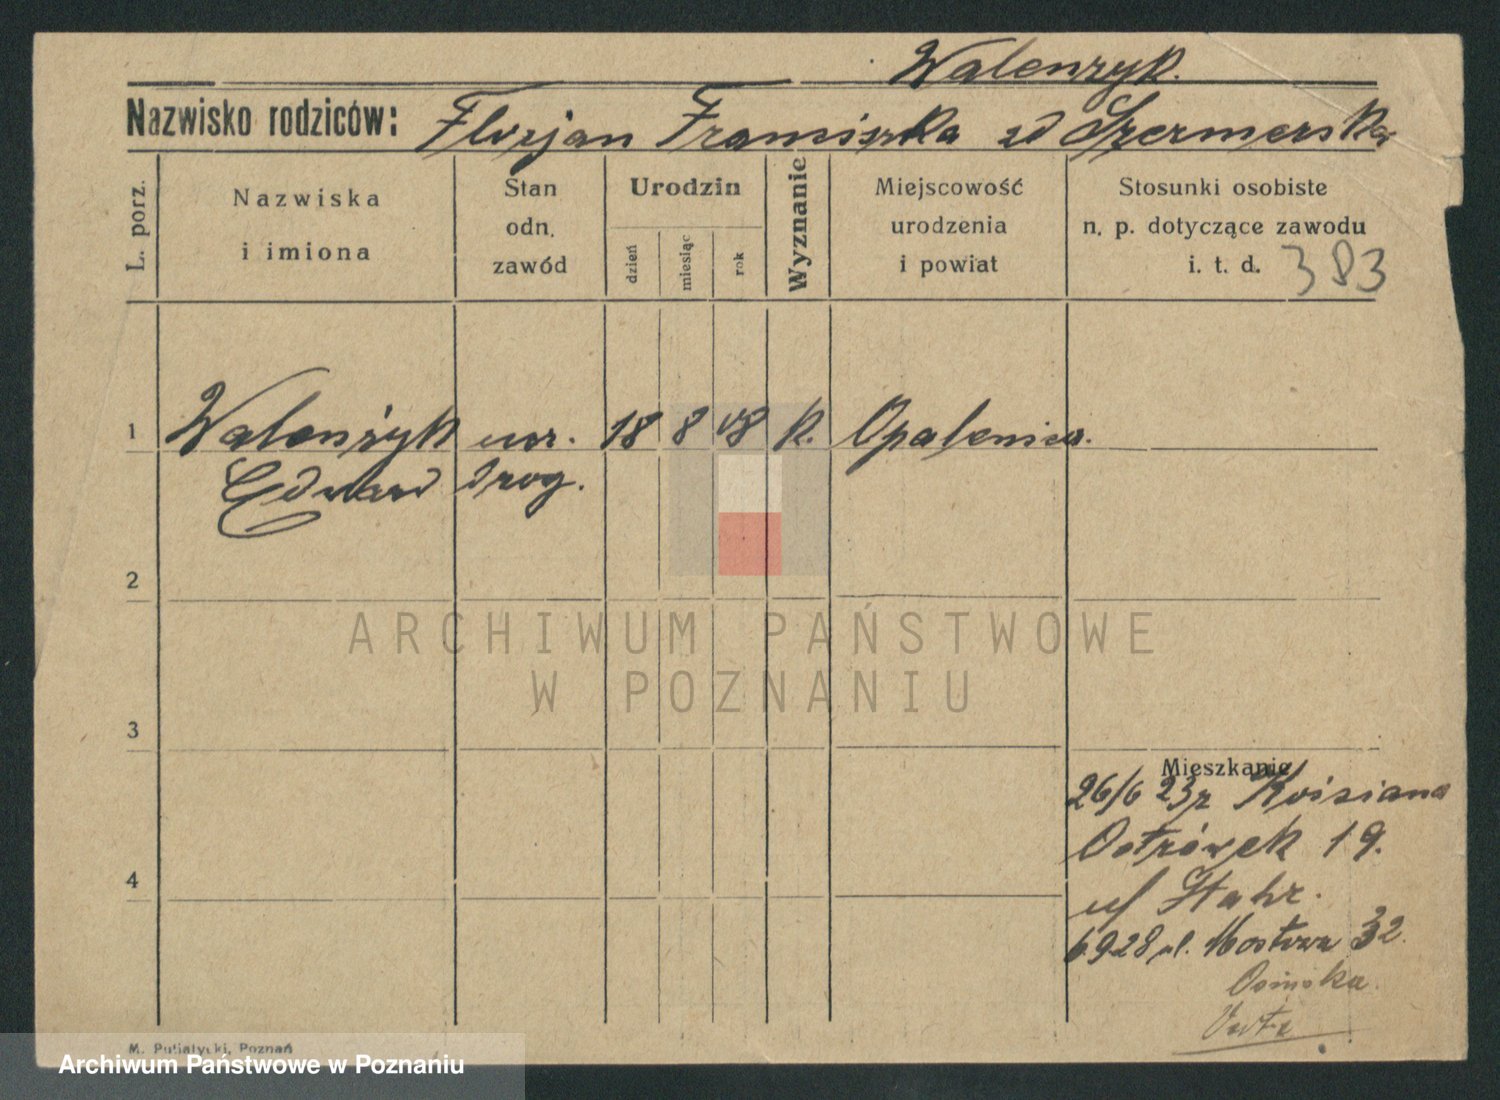 Walenzyk.
Nazwisko rodziców: Florjan Franciszka zd Szermerska
L. porz.
Nazwiska i imiona
Stan odn. zawód
Urodzin
dzień
miesiąc
rok
Wyznanie
Miejscowość urodzenia i powiat
Stosunki osobiste n. p. dotyczące zawodu i. t. d.
383
1 Walenżyk usr. 18 8 08 k. Opalenica.
Edward drog.
2
ARCHIWUM PAŃSTWOWE
W POZNANIU
3
Mieszkanie
26/6 23r
Ostrówek 19.
4
u/ Stahr.
6928 ul. Mostowa 32.
Osinska.
M. Putiatycki, Poznań
Archiwum Państwowe w Poznaniu